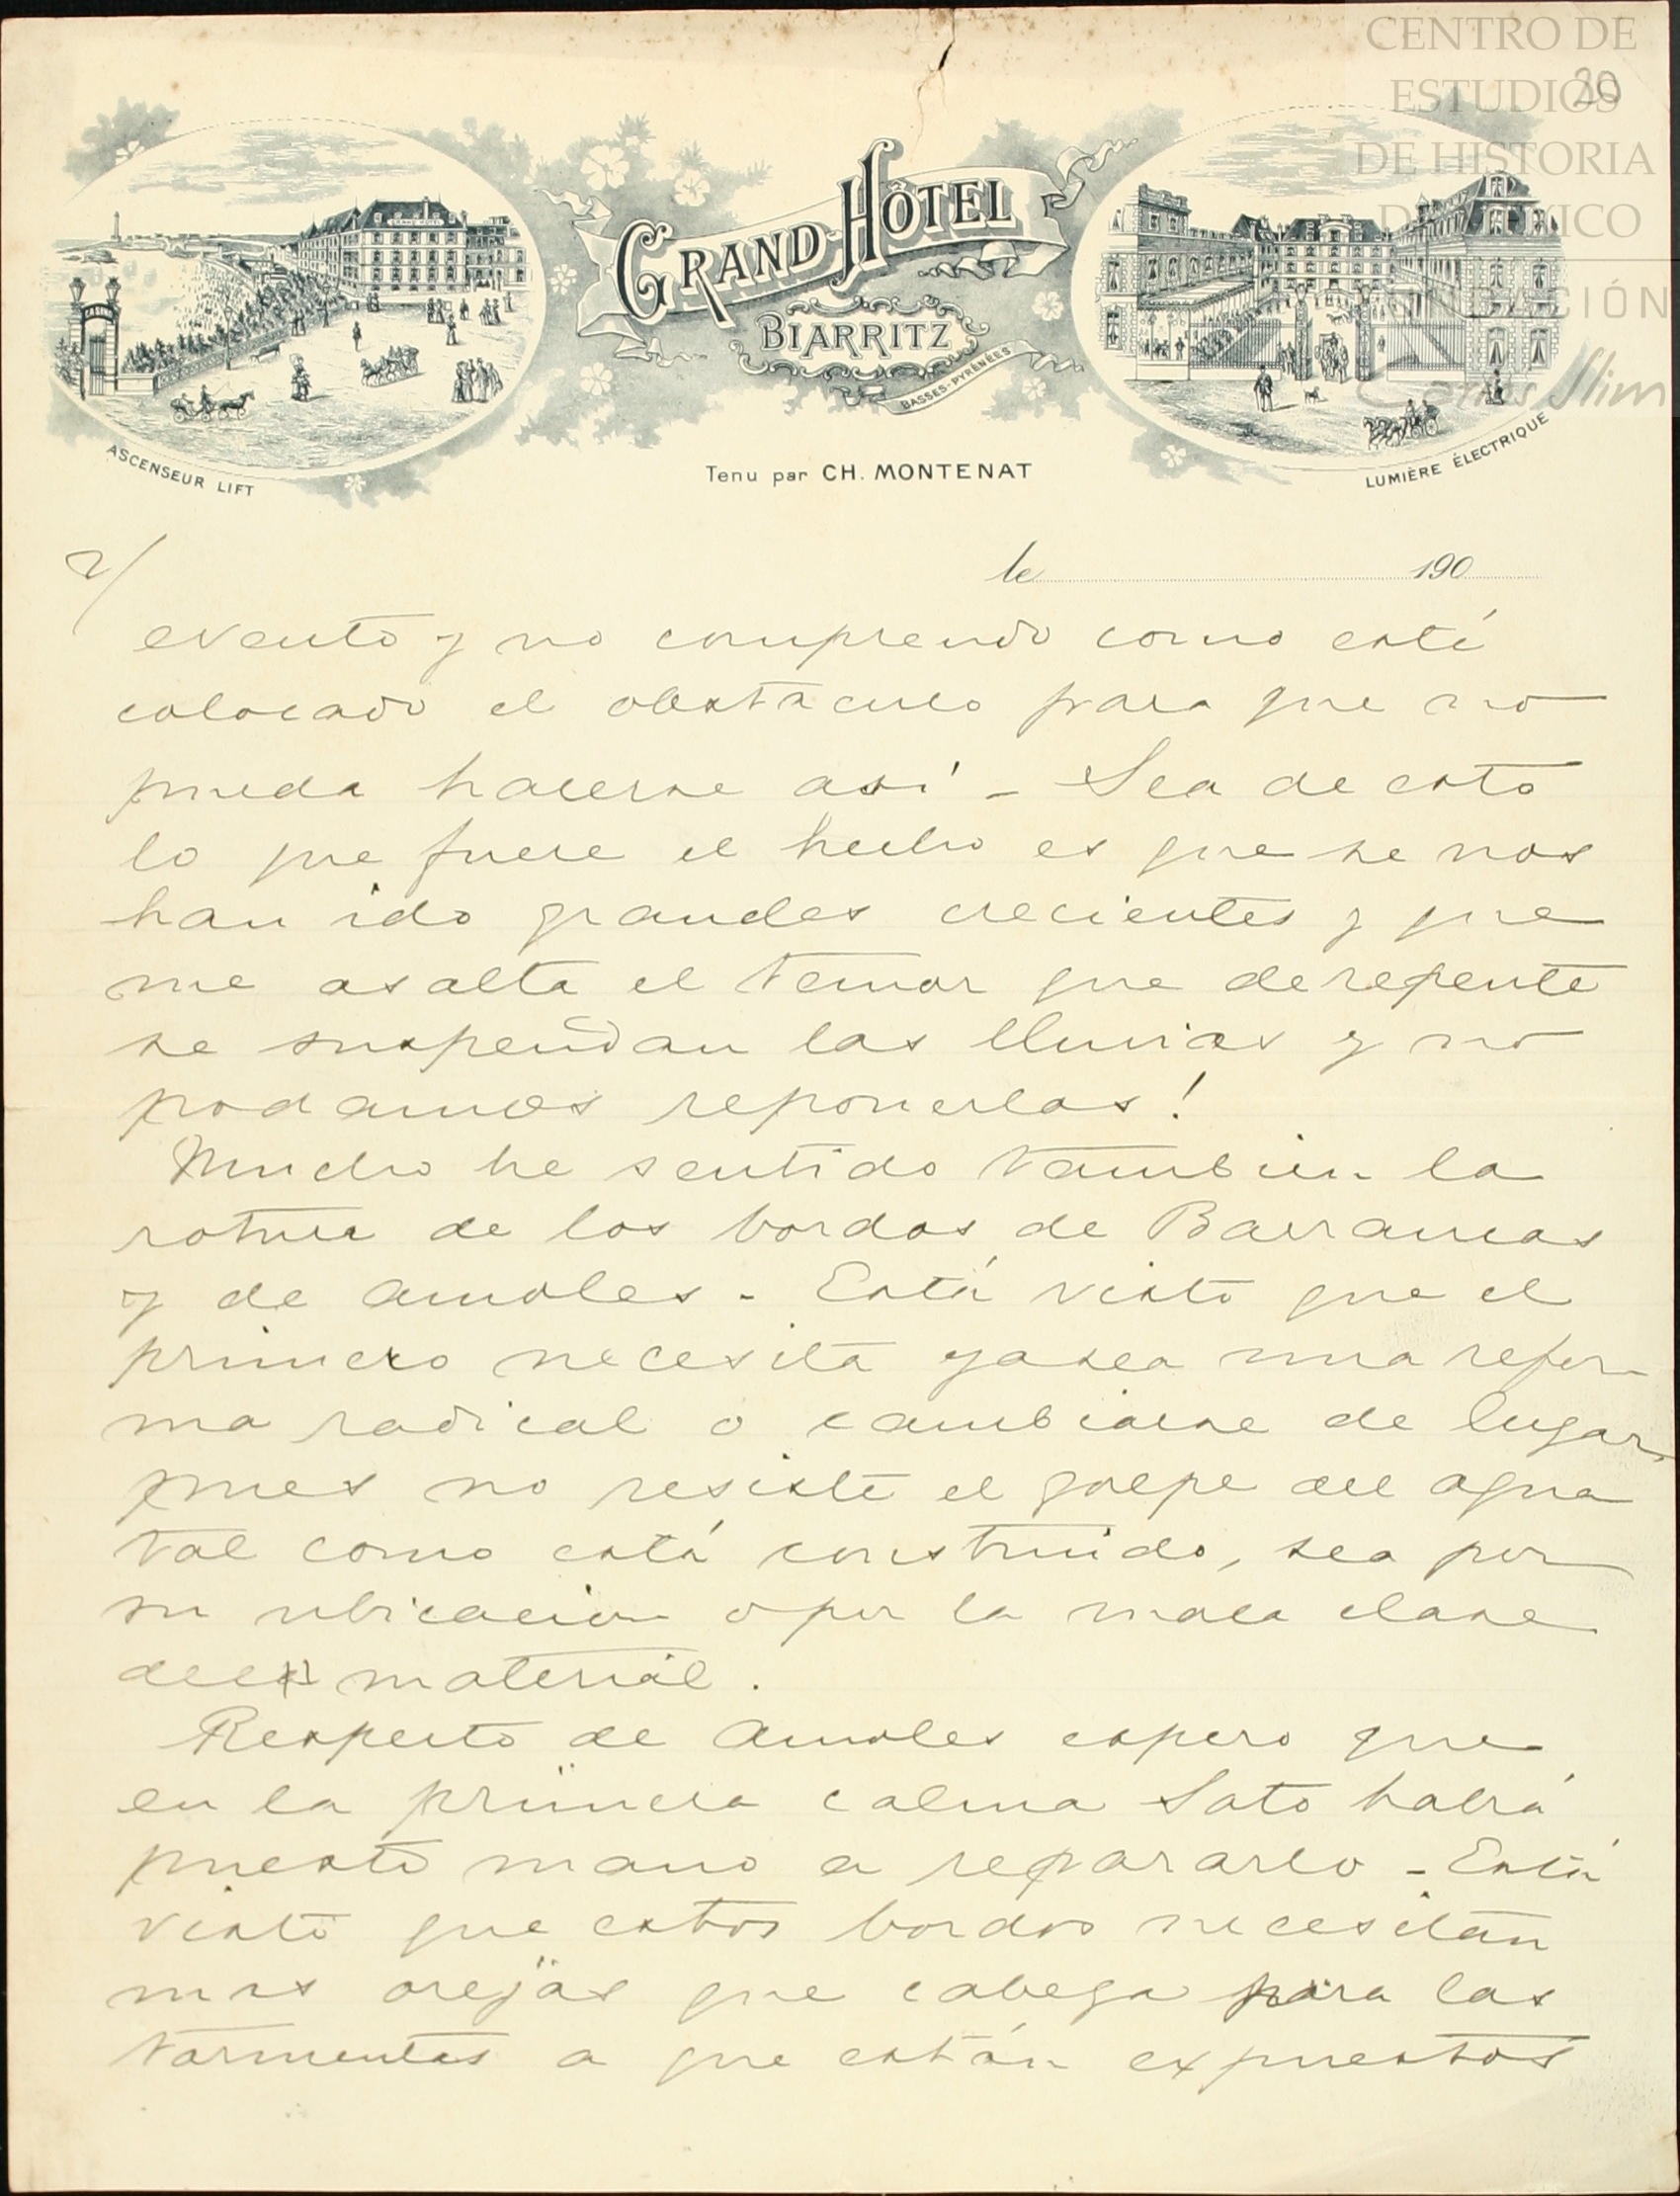 CENTRO DE
ESTUDIOS
DE HISTORIA
DE MÉXICO
FUNDACIÓN
Carlos Slim
20
GRAND-HÔTEL
BIARRITZ
BASSES-PYRÉNÉES
CASINO
GRAND HOTEL
ASCENSEUR LIFT
Tenu par CH. MONTENAT
LUMIÈRE ÉLECTRIQUE
2/
le 190
evento y no comprendo como esté
colocado el obstaculo para que no
pueda hacerse así - Sea de esto
lo que fuere el hecho es que se nos
han ido grandes crecientes y que
me asalta el temor que derepente
se suspendan las lluvias y no
podamos reponerlas!
Mucho he sentido tambien la
rotura de los bordos de Barrancas
y de Amoles - Está visto que el
primero necesita yasea una refor-
ma radical o cambiarse de lugar
pues no resiste el golpe del agua
tal como está construido, sea por
su ubicacion o por la mala clase
del material.
Respecto de Amoles espero que
en la primera calma Soto habrá
puesto mano a repararlo - Está
visto que estos bordos necesitan
mas orejas que cabeza para las
tormentas a que están expuestos